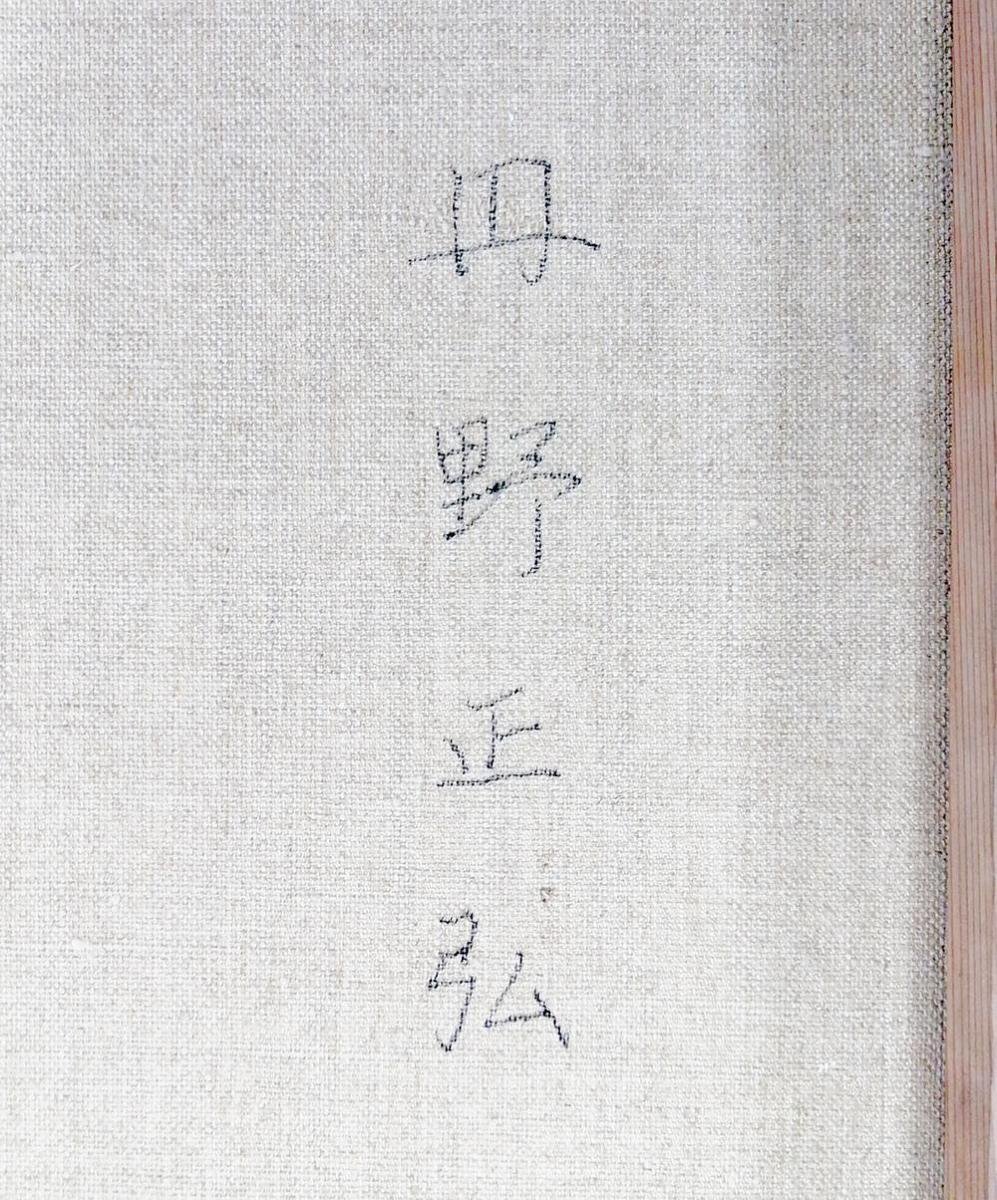 丹野正弘